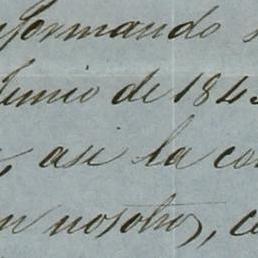 formando
Junio de 184
, asi la co
n nosotros, c